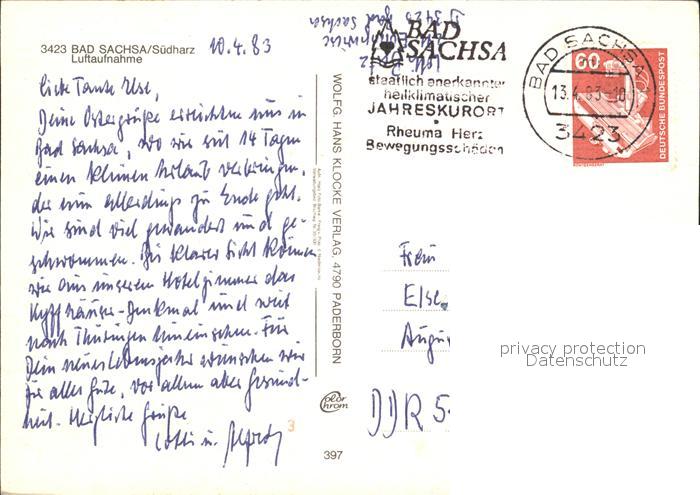 3423 BAD SACHSA/Südharz
Luftaufnahme
10.4.83
Liebe Tante Else,
Deine Ostergrüße erreichten uns in
Bad Sachsa, wo wir seit 14 Tagen
einen kleinen Urlaub verbringen,
der nun allerdings zu Ende geht.
Wir sind viel gewandert und ge-
schwommen. Bei klarer Sicht können
wir aus unserem Hotelzimmer das
Kyffhäuser-Denkmal und weit
nach Thüringen hineinsehen. Für
Dein neues Lebensjahr wünschen wir
Dir alles Gute, vor allem aber Gesund-
heit. Herzliche Grüße
Lotti u. Alfred
3
WOLFG. HANS KLOCKE VERLAG, 4790 PADERBORN
color
chrom
397
D 3423
Bad Sachsa
BAD
SACHSA
staatlich anerkannter
heilklimatischer
JAHRESKURORT
Rheuma Herz
Bewegungsschäden
BAD SACHSA
13.4.83-10
3423
60
DEUTSCHE BUNDESPOST
Frau
Else
Augu
DDR 5
privacy protection
Datenschutz